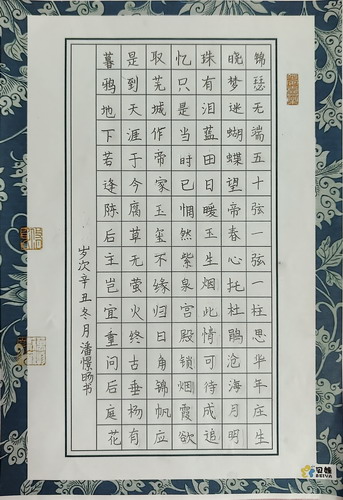 锦瑟无端五十弦一弦一柱思华年庄生
晓梦迷蝴蝶望帝春心托杜鹃沧海月明
珠有泪蓝田日暖玉生烟此情可待成追
忆只是当时已惘然紫泉宫殿锁烟霞欲
取芜城作帝家玉玺不缘归日角锦帆应
是到天涯于今腐草无萤火终古垂杨有
暮鸦地下若逢陈后主岂宜重问后庭花
岁次辛丑冬月潘憬旸书